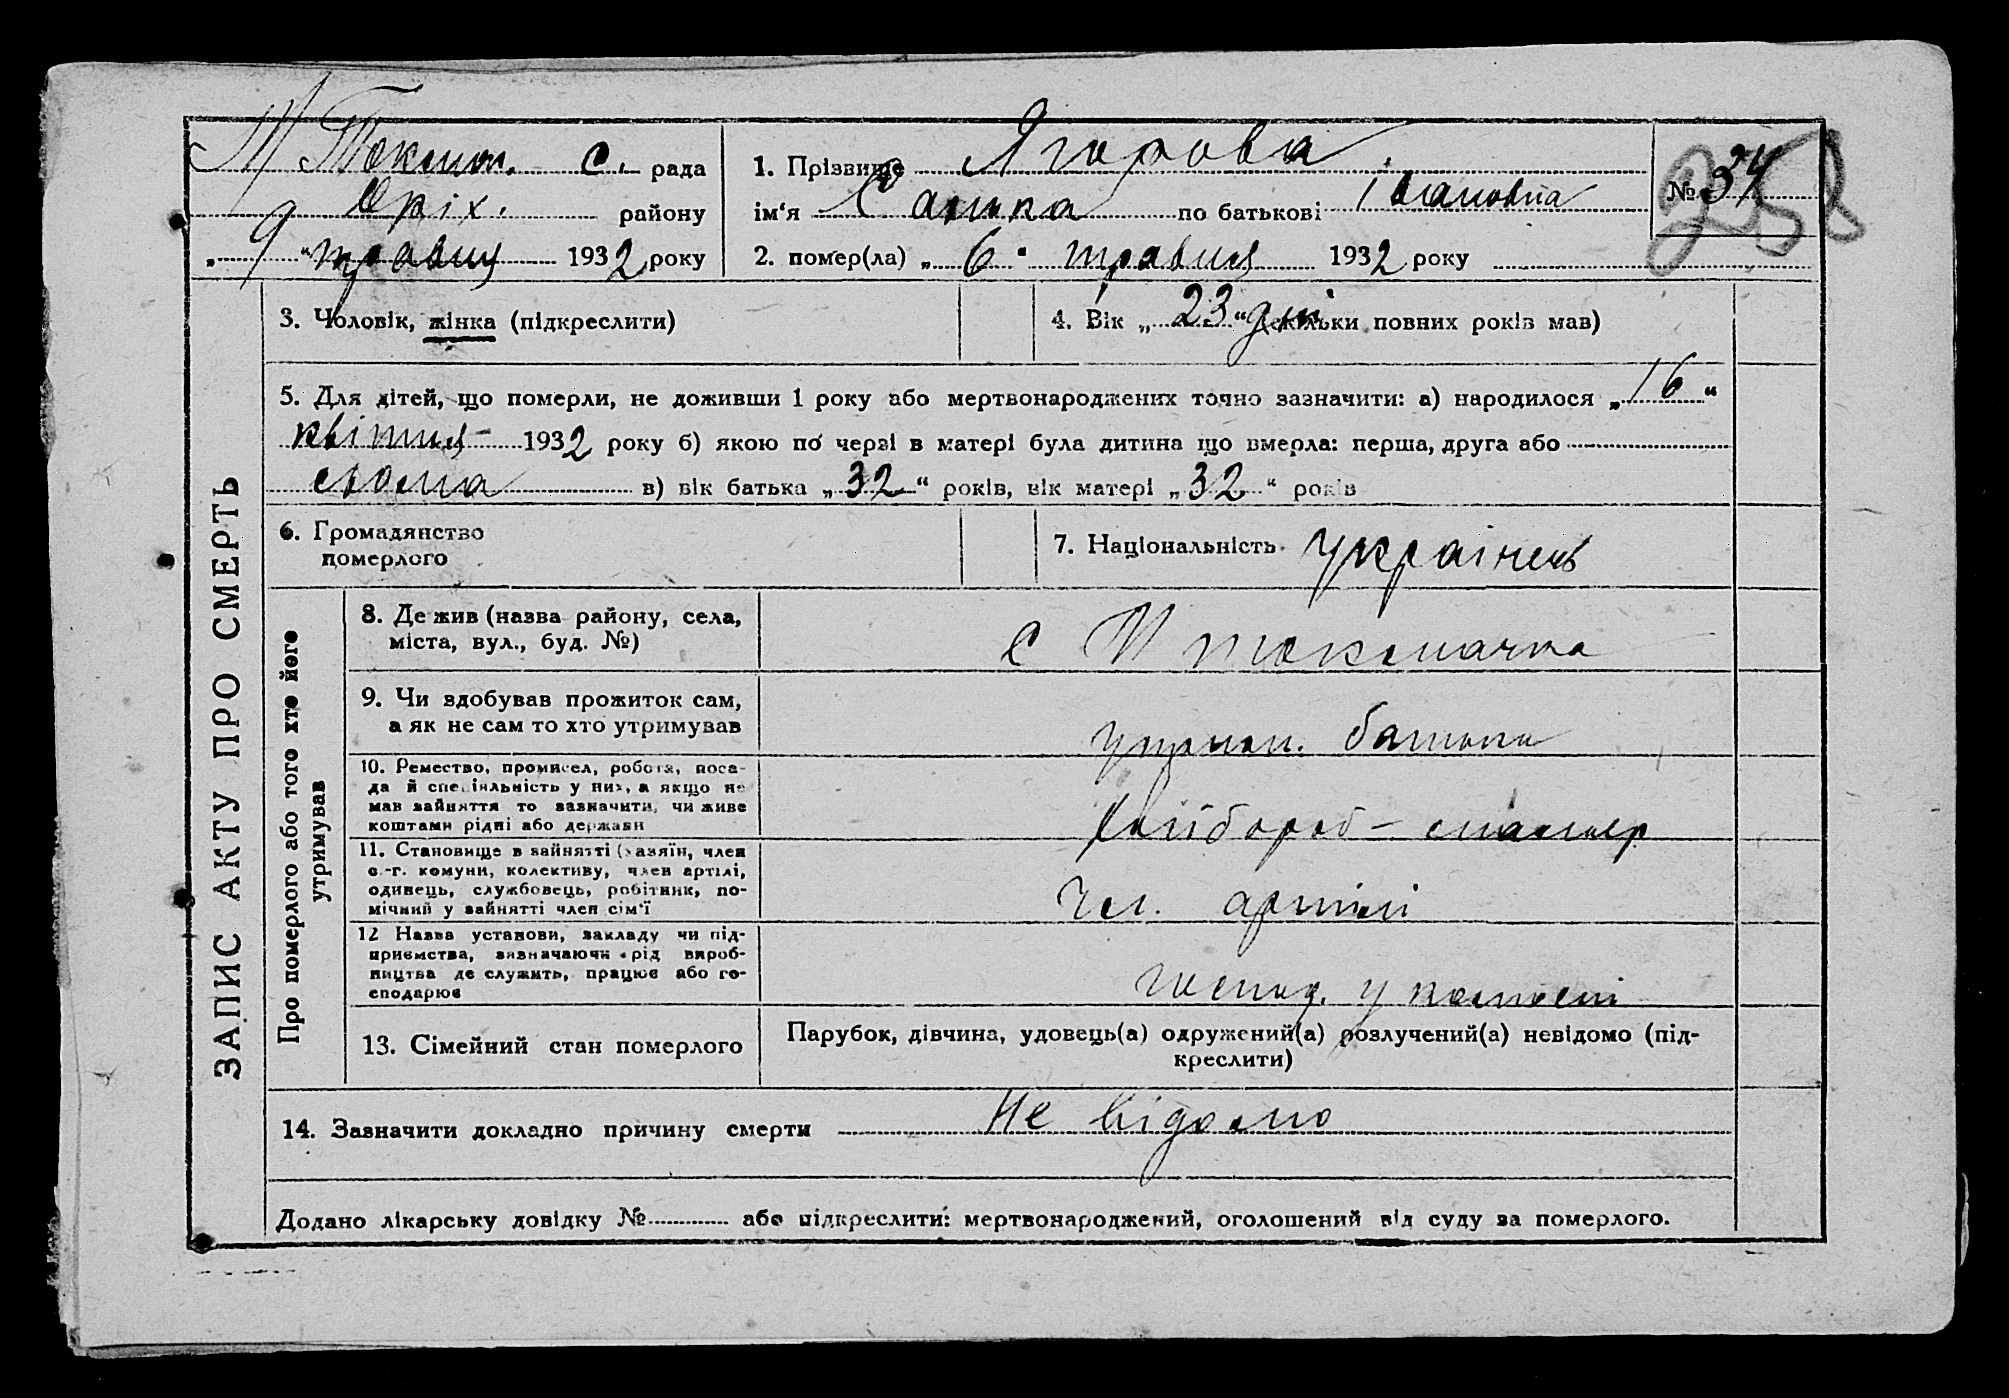 М Токмач. с. рада
Оріх. району
„ 9 “ травня 1932 року
1. Прізвище Ягорова
ім‘я Санка по батькові Івановна
2. помер(ла) „ 6 “ травня 1932 року
№ 34
252
3. Чоловік, жінка (підкреслити)
4. Вік „ 23 “ дні (скільки повних років мав)
5. Для дітей, що померли, не доживши 1 року або мертвонароджених точно зазначити: а) народилося „ 16 “
квітня 1932 року б) якою по черзі в матері була дитина що вмерла: перша, друга або
сьома в) вік батька „ 32 “ років, вік матері „ 32 “ років
6. Громадянство
померлого
7. Національність українець
ЗАПИС АКТУ ПРО СМЕРТЬ
Про померлого або того хто його
утримував
8. Де жив (назва району, села,
міста, вул., буд. №)
с М токмачка
9. Чи здобував прожиток сам,
а як не сам то хто утримував
утриман. батька
10. Ремество, промисел, робота, поса-
да й спеціяльність у них, а якщо не
мав зайняття то зазначити, чи живе
коштами рідні або держави
хлібороб –
11. Становище в зайнятті (хазяїн, член
с.-г. комуни, колективу, член артілі,
одинець, службовець, робітник, по-
мічний у зайнятті член сім‘ї
Чл. артілі
12 Назва установи, закладу чи під-
приємства, зазначаючи рід вироб-
ництва де служить, працює або го-
сподарює
господ. у колгоспі
13. Сімейний стан померлого
Парубок, дівчина, удовець(а) одружений(а) розлучений(а) невідомо (під-
креслити)
14. Зазначити докладно причину смерти Не відомо
Додано лікарську довідку № або підкреслити: мертвонароджений, оголошений від суду за померлого.